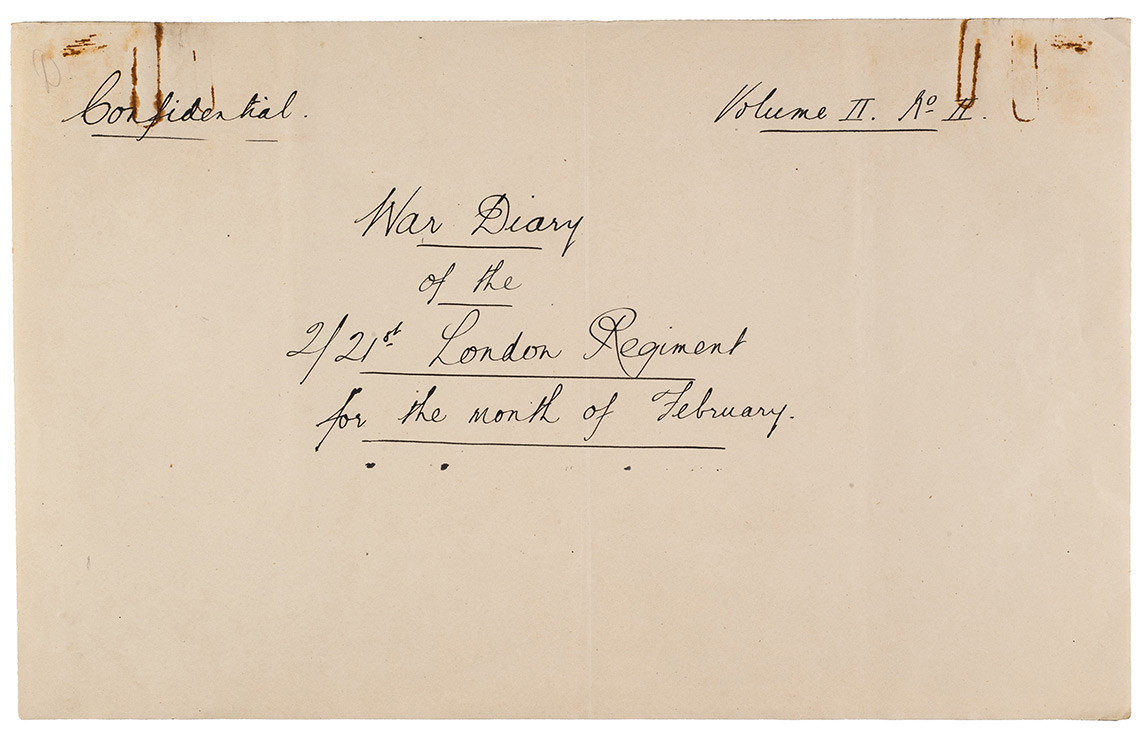 Confidential.
Volume II. No II.
War Diary
of the
2/21st London Regiment
for the month of February.